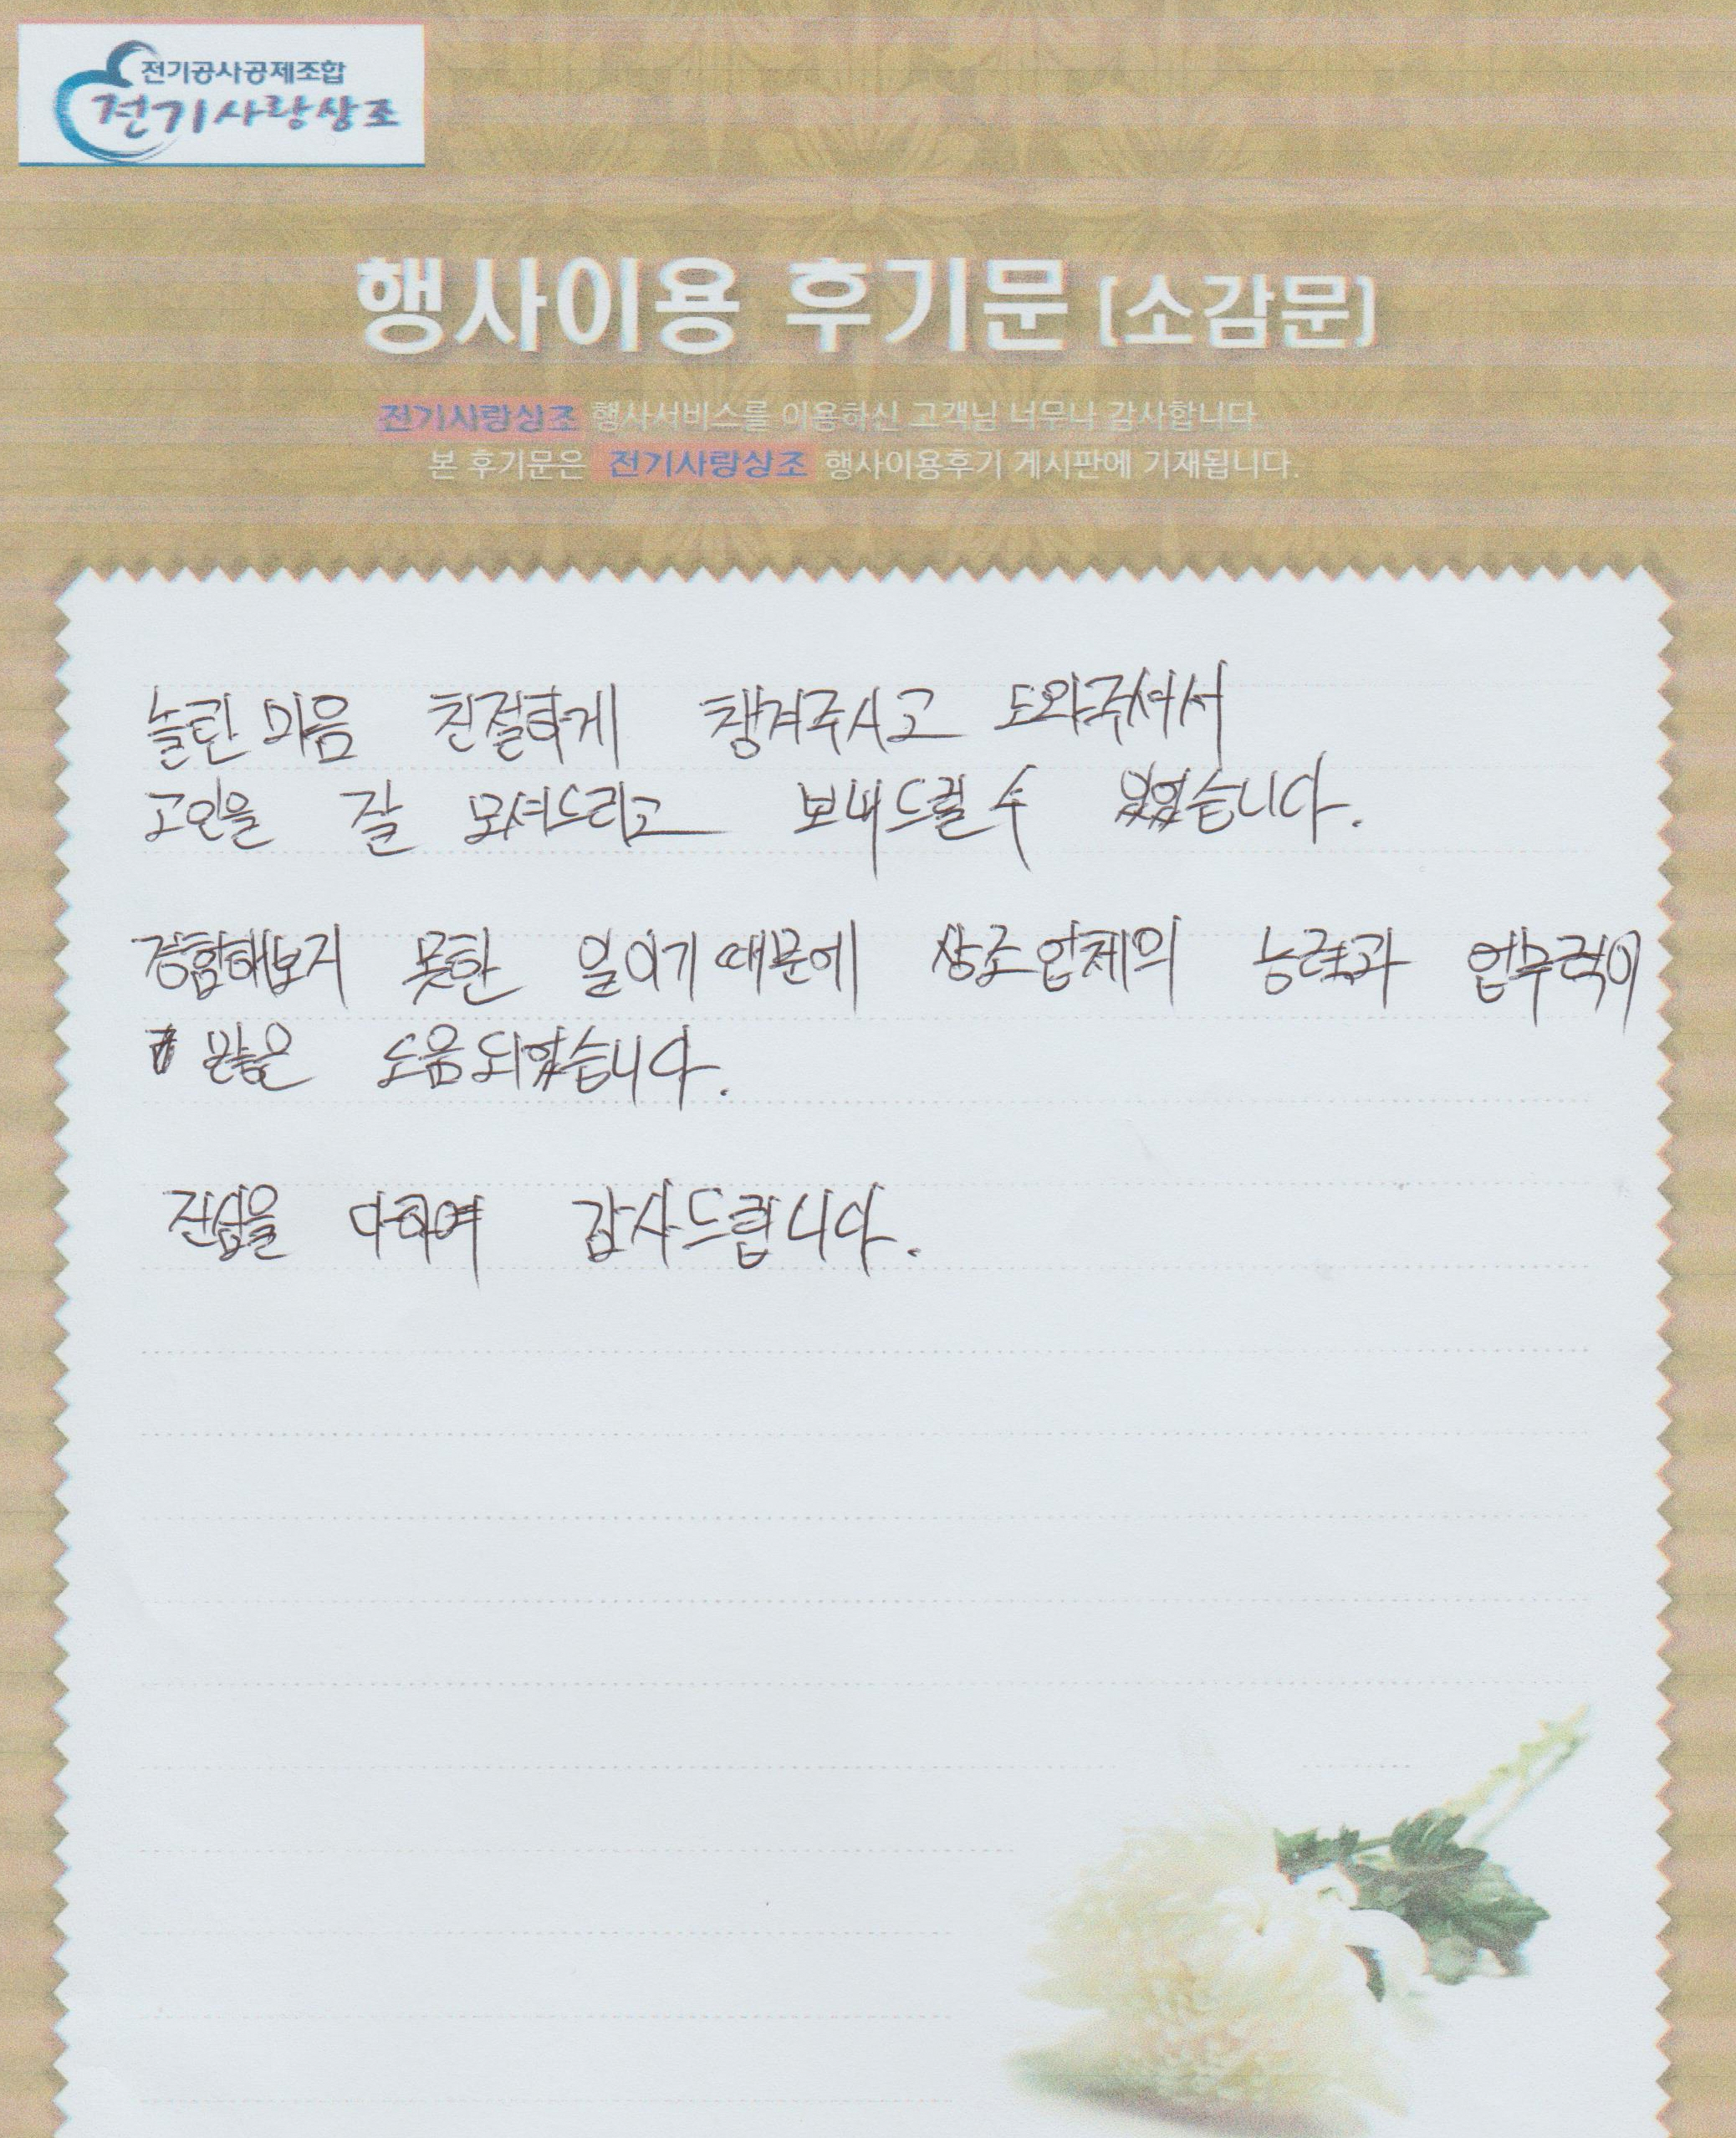 전기공사공제조합
전기사랑상조
행사이용 후기문 [소감문]
전기사랑상조 행사서비스를 이용하신 고객님 너무나 감사합니다
본 후기문은 전기사랑상조 행사이용후기 게시판에 기재됩니다.
놀란 마음 친절하게 챙겨주시고 도와주셔서
고인을 잘 모셔드리고 보내드릴 수 있었습니다.
경험해보지 못한 일이기 때문에 상조업체의 능력과 업무력이
많은 도움되었습니다.
진심을 다하여 감사드립니다.